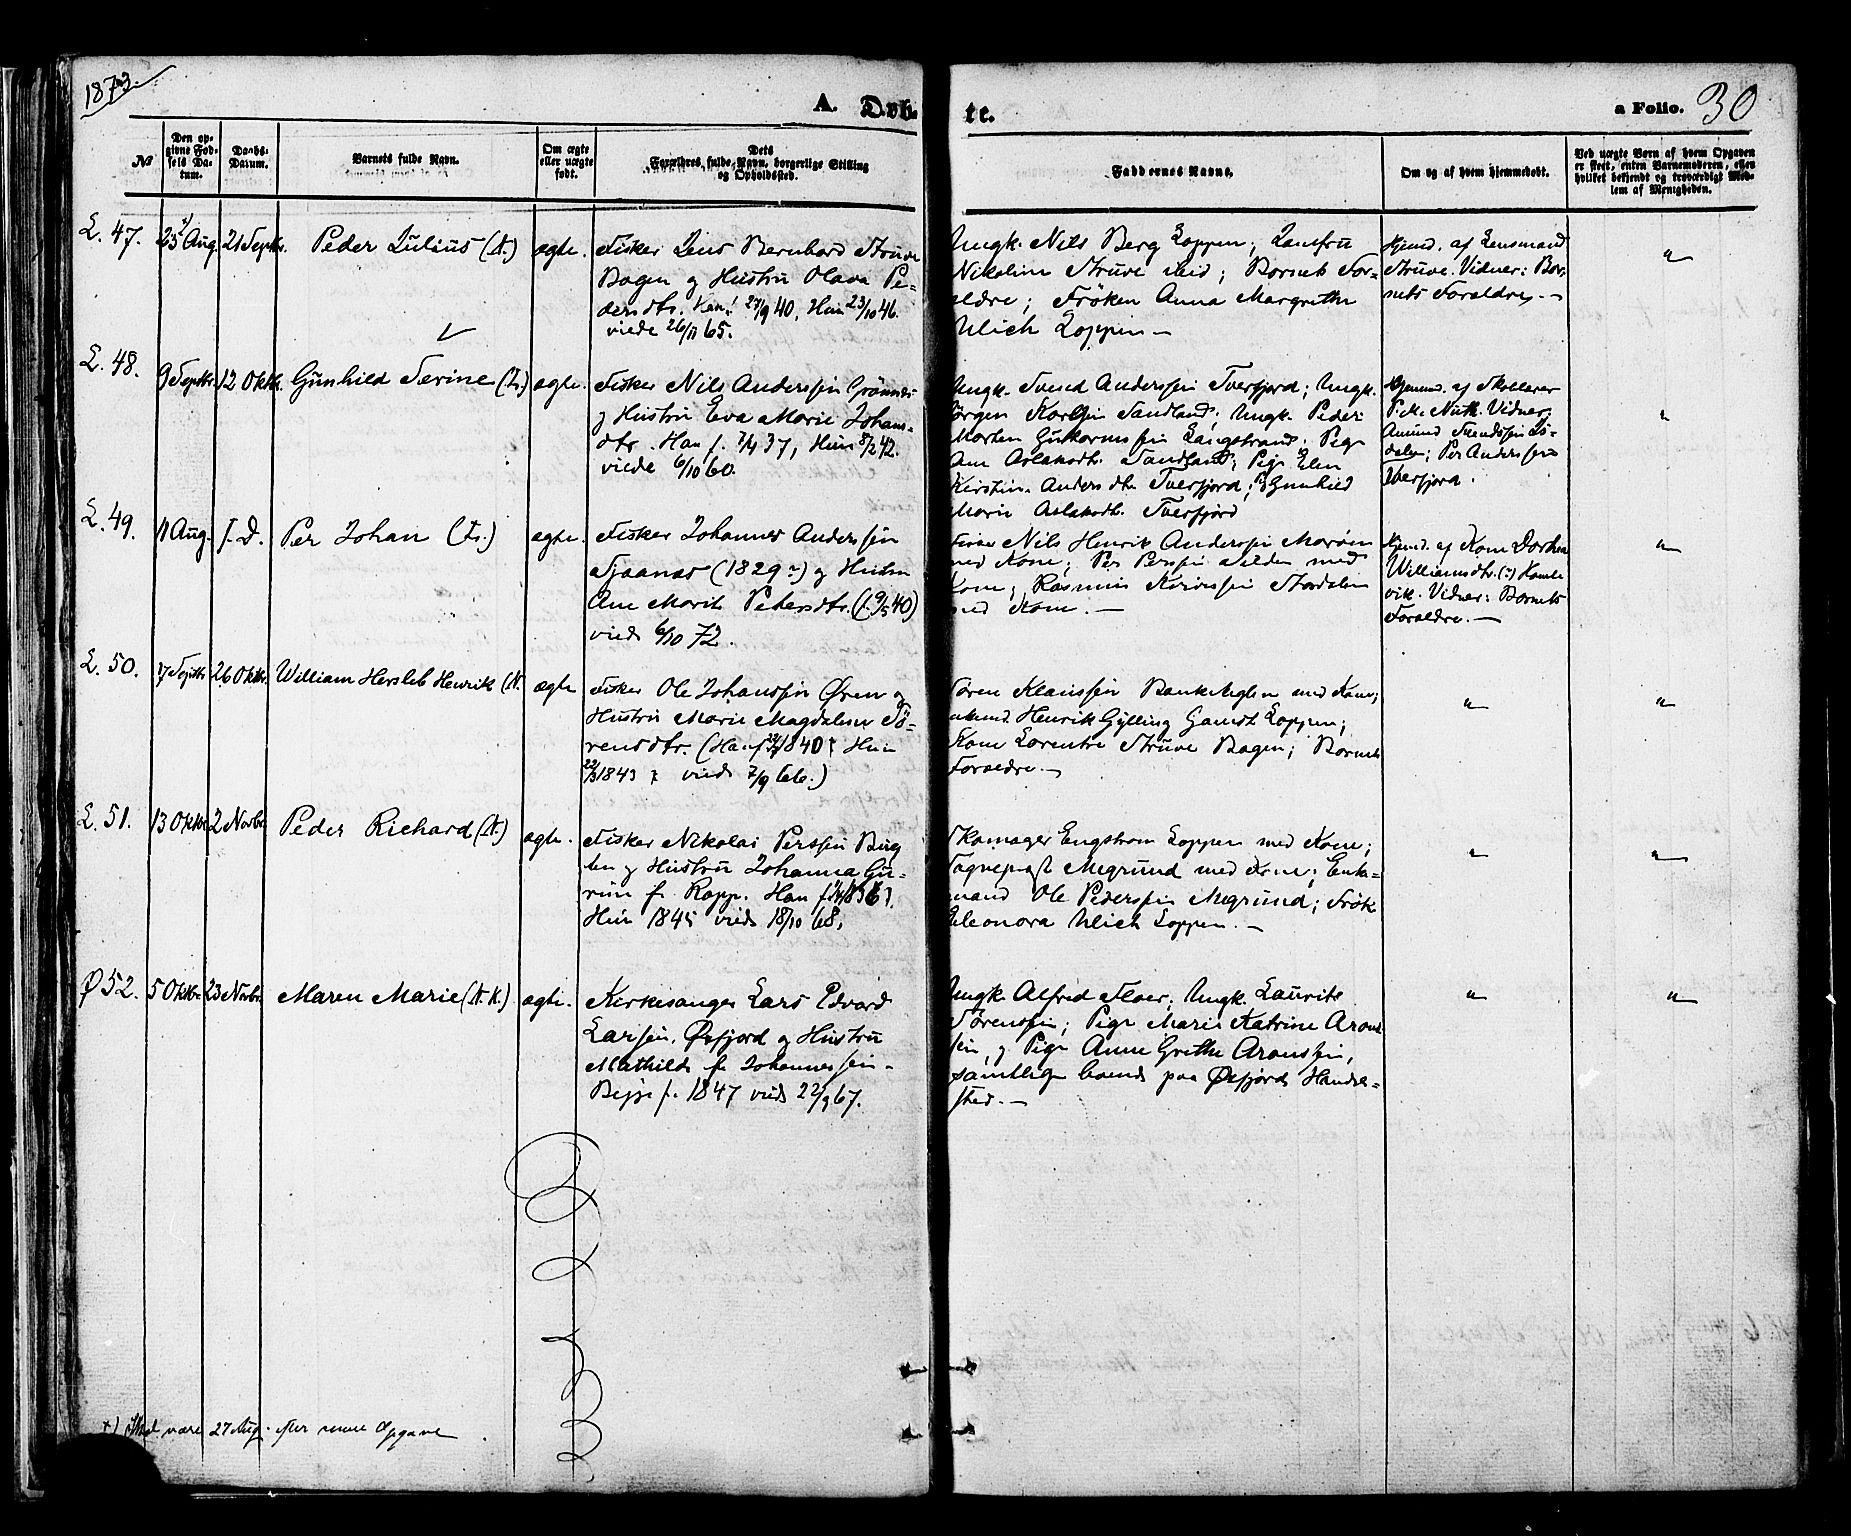 1873.
A. Døb-
te.
a Folio. 30
№
Den op-
givne Fød-
sels Da-
tum.
Daabs-
Datum.
Barnets fulde Navn.
Om ægte
eller uægte
født.
Dets
Forældres fulde Navn, borgerlige Stilling
og Opholdssted.
Faddernes Navne.
Om og af hvem hjemmedøbt.
Ved uægte Børn af hvem Opgaven
er skeet, enten Barnemoderen, eller
hvilket bekjendt og troværdigt Med-
lem af Menigheden.
L. 47.
25 Aug.
21 Septbr.
Peder Julius (N.)
ægte.
Fisker Jens Bernhard Struve
Bagen og Hustru Olava Pe-
dersdtr. Han f. 27/9 40, Hun 23/10 46.
viede 26/11 65.
Ungk. Nils Berg Loppen; Jomfru
Nikoline Struve ibid; Barnets For-
ældre; Fröken Anna Margrethe
Ulich Loppen —
Hjemd. af Lensmand
Struve. Vidner: Bar-
nets Forældre. —
"
L. 48.
9 Septbr.
12 Oktbr.
Gunhild Serine
ægte.
Fisker Nils Anderssen
og Hustru Eva Marie Johans-
dtr. Han f. 7/4 37, Hun 8/2 42.
viede 6/10 60.
Ungk. Svend Anderssen Tverfjord; Ungk.
Jørgen Karlsen Sandland; Ungk. Peder
Morten Langstrand; Pige
Ane Aslaksdtr. Sandland; Pige Elen
Kirstine Andersdtr Tverfjord; Gunhild
Marie Aslaksdtr. Tverfjord
Hjemmd. af Skolelærer
Vidner:
Amund
Per Anderssen
Tverfjord.
"
L. 49.
11 Aug.
s. D.
Per Johan
ægte
Fisker Johannes Anderssen
(1829 ?) og Hustru
Ane Marit Petersdtr. (f. 9/5 40)
viede 6/10 72.
Nils Henrik Anderssen
med Kone; Per Perssen med
Kone; Rasmus
med Kone. —
Hjemd. af Kone Dorthea
Williamsdtr. (?) Komle
vik. Vidner: Barnets
Forældre. —
"
L. 50.
Septbr.
26 Oktbr.
William Hersleb Henrik (N.
ægte
Fisker Ole Johanssen Øren og
Hustru Marie Magdalene Sö-
rensdtr. (Han f. 1840; Hun
1843; viede 7/9 66.)
Sören Klaussen med Kone;
Henrik Gylling Loppen;
Kone Lorentze Struve Bagen; Barnets
Forældre. —
"
"
L. 51.
13 Oktbr.
2 Novbr.
Peder Richard (N.)
ægte.
Fisker Nikolai Perssen
og Hustru Johanna Gu-
f. Rapp. Han f.
Hun 1845 viede 18/10 68.
Skomager Engstrom Loppen med Kone;
Sogneprest Megrund med Kone; Enke-
mand Ole Pederssen Megrund; Frök
Eleonora Ulich Loppen. —
"
"
Ø 52.
5 Oktbr.
23 Novbr.
Maren Marie (N. K.)
ægte.
Kirkesanger Lars Edvard
Larsen, Øxfjord og Hustru
Mathilde f. Johannessen.
Begge f. 1847 viede 22/9 67.
Ungk. Alfred Floer; Ungk. Laurits
Sörenssen; Pige Marie Katrine Arons-
sen, og Pige Anne Grethe Aronssen,
samtlige boende paa Øxfjord Handel-
sted. —
"
"
x) Skal være 27 Aug. efter senere Opgave